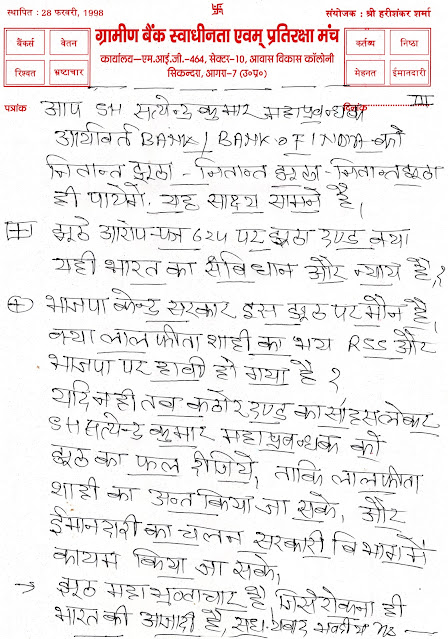 स्थापित : 28 फरवरी, 1998
संयोजक : श्री हरीशंकर शर्मा
ग्रामीण बैंक स्वाधीनता एवम् प्रतिरक्षा मंच
बैंकर्स वेतन
रिश्वत भ्रष्टाचार
कार्यालय–एम.आई.जी.-464, सेक्टर-10, आवास विकास कॉलोनी
सिकन्दरा, आगरा-7 (उ०प्र०)
कर्तव्य निष्ठा
मेहनत ईमानदारी
पत्रांक
दिनांक III
आप SH सत्येन्द्र कुमार महाप्रबन्धक
आर्यावर्त BANK / BANK OF INDIA को
नितान्त झूठा - नितान्त झूठा - नितान्त झूठा
ही पायेंगे. यह साक्ष्य सामने है।
झूठे आरोप-पत्र 624 पर झूठा दण्ड क्या
यही भारत का संविधान और न्याय है?
भाजपा केन्द्र सरकार इस झूठ पर मौन है
क्या लाल फीता शाही का भय RSS और
भाजपा पर हावी हो गया है?
यदि नहीं तब कठोर दण्ड का साहस लेकर
SH सत्येन्द्र कुमार महाप्रबन्धक को
झूठ का फल दीजिये, ताकि लाल फीता
शाही का अन्त किया जा सके, और
ईमानदारी का चलन सरकारी विभाग में
कायम किया जा सके,
→ झूठ महा भ्रष्टाचार है जिसे रोकना ही
भारत की आजादी है,